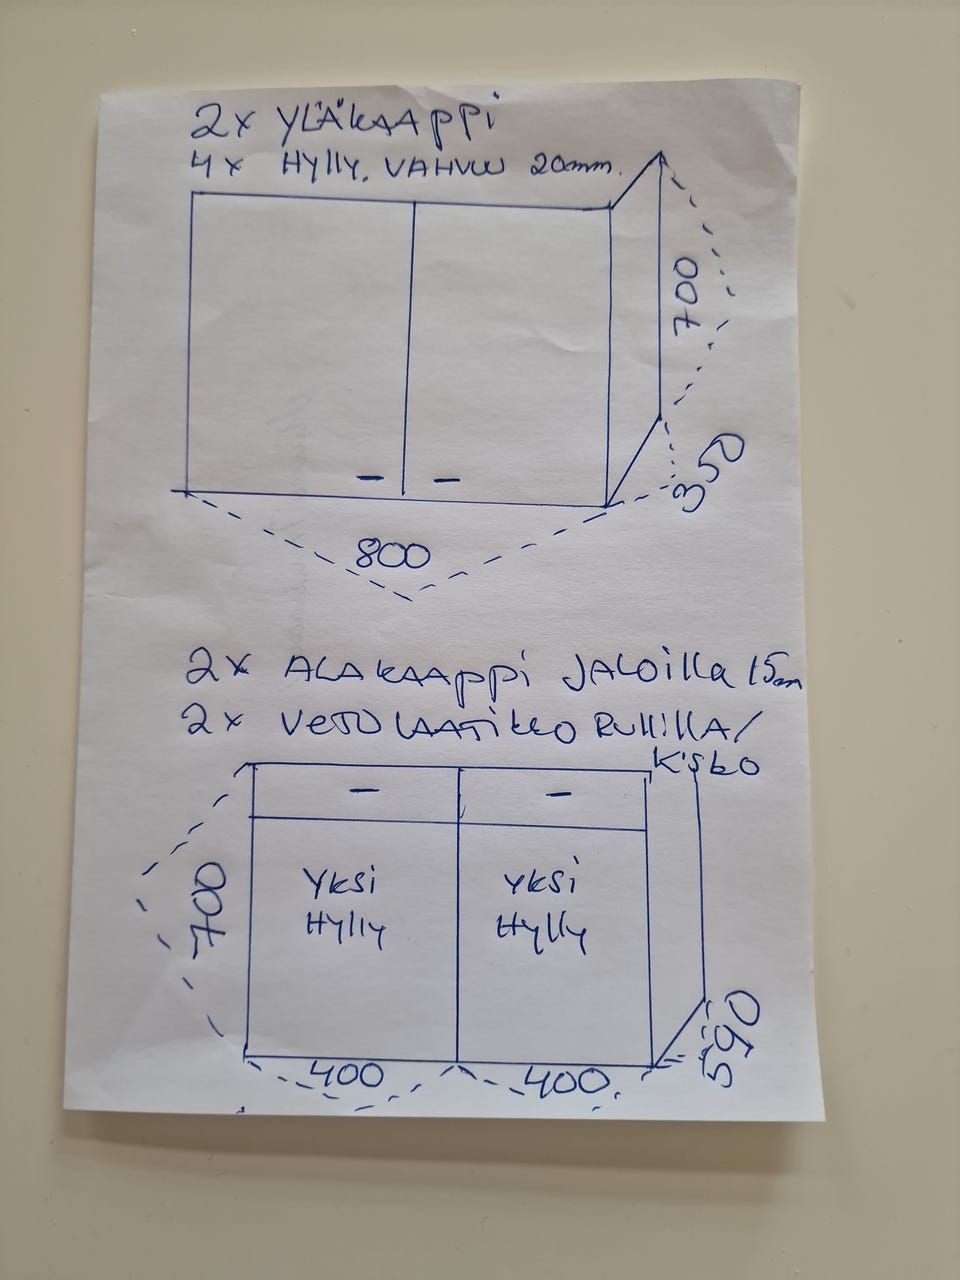 2x YLÄKAAPPI
4x HYLLY. VAHVUU 20mm.
700
350
800
2x ALAKAAPPI JALOILLA 15cm
2x VETOLAATIKKO RULLILLA/
KISKO
700
YKSI
HYLLY
YKSI
HYLLY
590
400
400